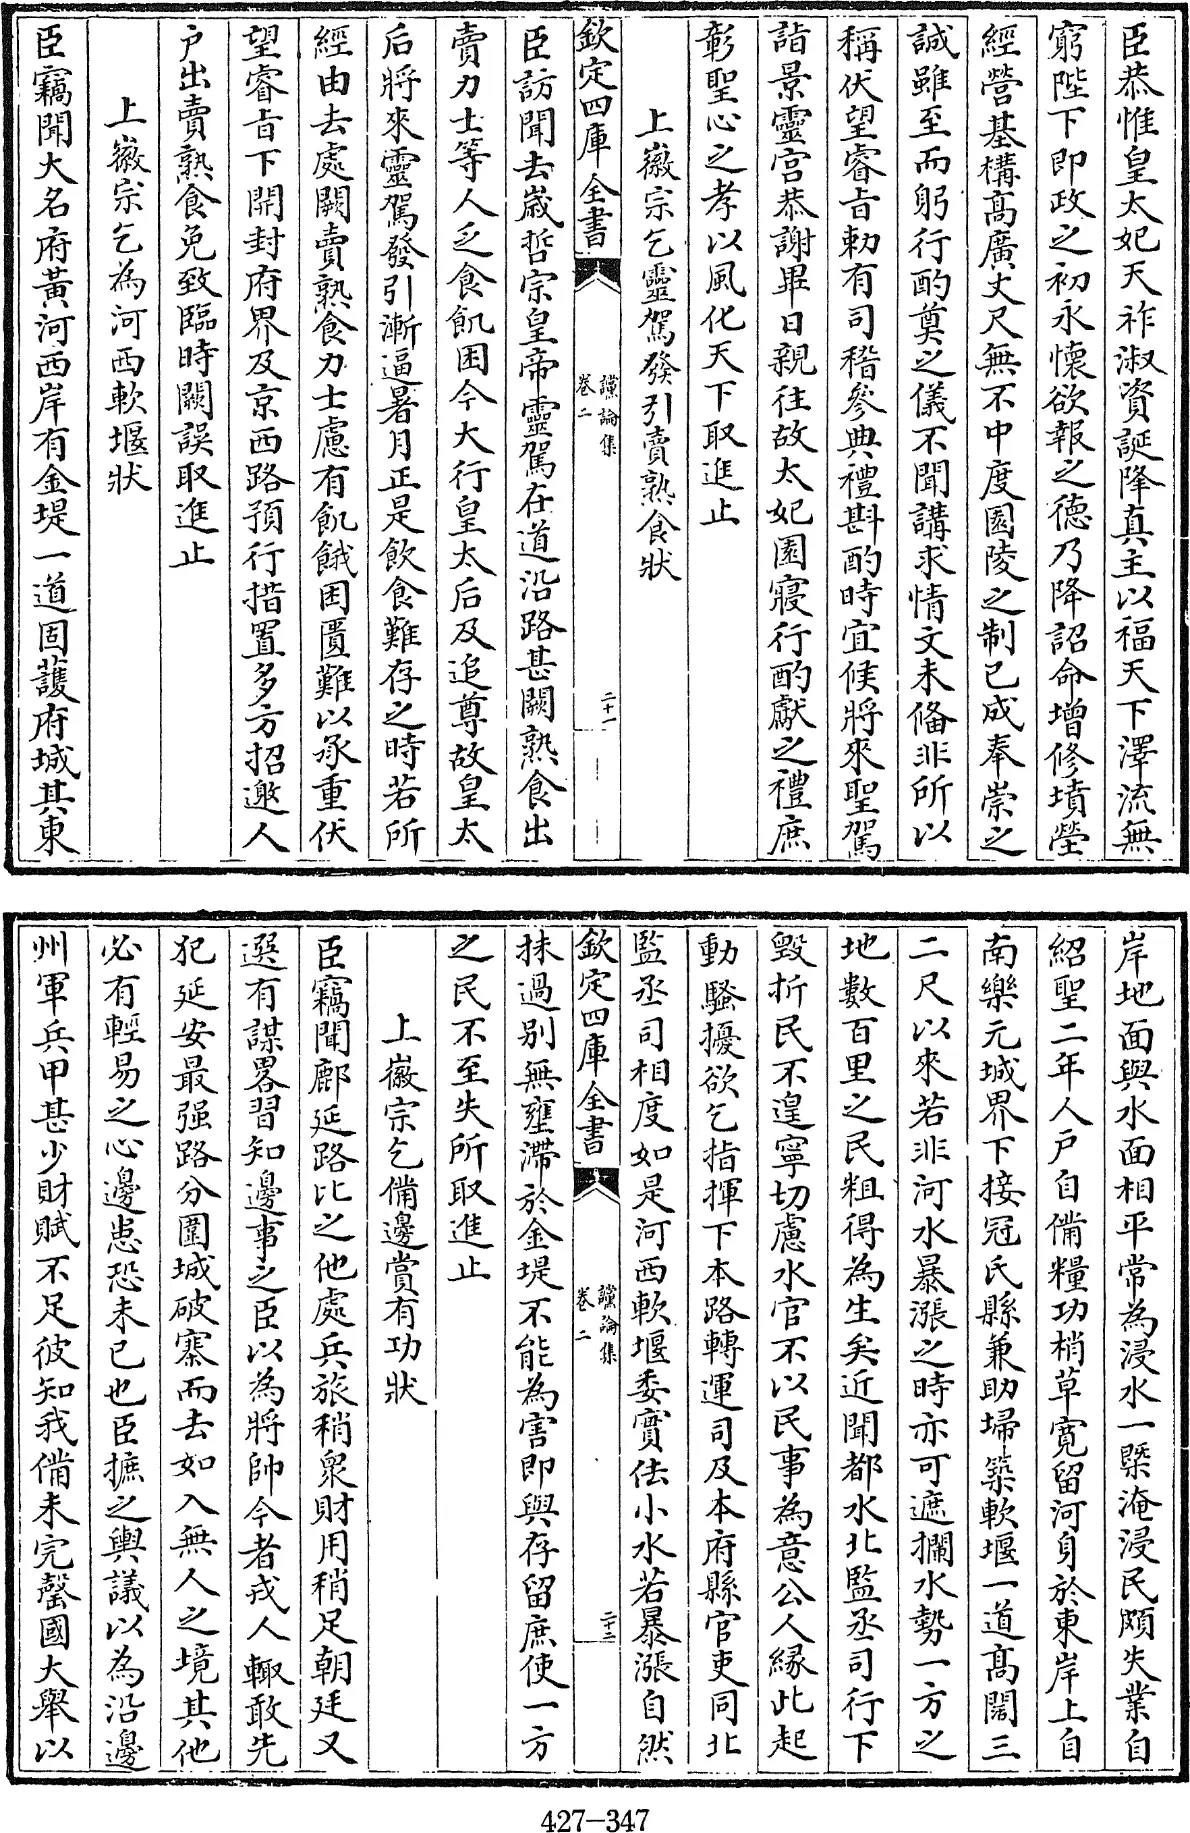 臣恭惟皇太妃天祚淑資誕降真主以福天下澤流無
窮陛下即政之初永懷欲報之德乃降詔命增修墳塋
經營基構髙廣丈尺無不中度園陵之制已成奉崇之
誠雖至而躬行酌奠之儀不聞講求情文未備非所以
稱伏望睿旨勅有司稽參典禮斟酌時宜候將來聖駕
詣景靈宮恭謝畢日親往故太妃園寢行酌獻之禮庶
彰聖心之孝以風化天下取進止
上徽宗乞靈駕發引賣熟食狀
欽定四庫全書
讜論集
卷二
二十一
臣訪聞去嵗哲宗皇帝靈駕在道沿路甚闕熟食出
賣力士等人乏食飢困今大行皇太后及追尊故皇太
后將來靈駕發引漸逼暑月正是飲食難存之時若所
經由去處闕賣熟食力士慮有飢餓困匱難以承重伏
望睿旨下開封府界及京西路預行措置多方招邀人
户出賣熟食免致臨時闕誤取進止
上徽宗乞為河西軟堰狀
臣竊聞大名府黃河西岸有金堤一道固護府城其東
岸地面與水面相平常為浸水一槩淹浸民頗失業自
紹聖二年人戸自備糧功梢草寛留河身於東岸上自
南樂元城界下接冠氏縣兼助埽築軟堰一道髙闊三
二尺以來若非河水暴漲之時亦可遮攔水勢一方之
地數百里之民粗得為生矣近聞都水北監丞司行下
毀折民不遑寧切慮水官不以民事為意公人縁此起
動騷擾欲乞指揮下本路轉運司及本府縣官吏同北
監丞司相度如是河西軟堰委實佉小水若暴漲自然
抹過别無壅滯於金堤不能為害即與存留庶使一方
欽定四庫全書
讜論集
卷二
二十二
之民不至失所取進止
上徽宗乞備邊賞有功狀
臣竊聞鄜延路比之他處兵旅稍衆財用稍足朝廷又
選有謀畧習知邊事之臣以為將帥今者戎人輙敢先
犯延安最强路分圍城破寨而去如入無人之境其他
必有輕易之心邊患恐未已也臣摭之輿議以為沿邊
州軍兵甲甚少財賦不足彼知我備未完罄國大舉以
427-347